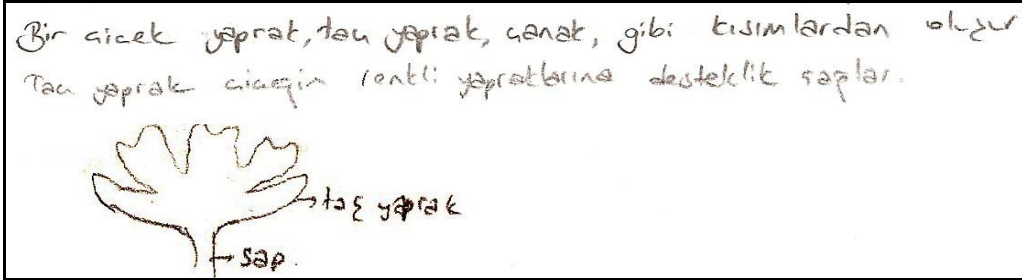 Bir çiçek yaprak, taç yaprak, çanak, gibi kısımlardan oluşur
Taç yaprak çiçeğin renkli yapraklarına desteklik sağlar.
taç yaprak
sap.